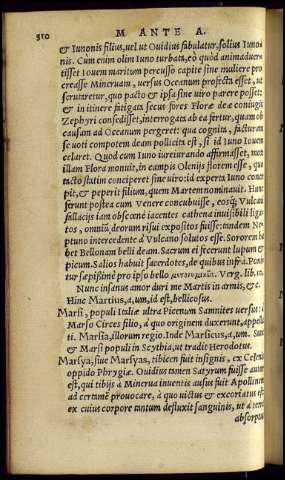 310 M ANTE A.
& Iunonis filius, uel ut Ouidius fabulatur, solius Iunonis
nis. Cum enim olim Iuno turbata, eò quòd animaduer
tisset Iouem maritum percusso capite sine muliere pro
creasse Mineruam, uersus Oceanum profecta esset, ut
scrutaretur, quo pacto & ipsa sine uiro parere posset:
& in itinere fatigata secus fores Floræ deæ coniugis
Zephyri consedisset, interrogata ab ea fertur, quam ob
causam ad Oceanum pergeret: qua cognita, facturam
se uoti compotem deam pollicita est, si id Iuno Iouem
celaret. Quod cum Iuno iureiurando affirmasset, mon
illam Flora monuit, in campis Olenijs florem esse, quo
tacto statim conciperet sine uiro: id experta Iuno conce
pit, & peperit filium, quem Martem nominauit. Hunc
ferunt postea cum Venere concubuisse, eosq́; Vulcani
fallacijs iam obscœnè iacentes cathena inuisibili liga
tos, omniũ, deorum risui expositos fuisse: tandem Ne
ptuno intercedente à Vulcano solutos esse. Sororem ha
bet Bellonam belli deam. Sacrum ei fecerunt lupum &
picum. Salios habuit sacerdotes, de quibus infrà. Poni
tur sæpissimè pro ipso bello Verg. lib. 10.
Nunc insanus amor duri me Martis in armis, &c.
Hinc Martius, a, um, id est, bellicosus.
Marsi, populi Italiæ ultra Picenum Samnites uersus: à
Marso Circes filio, à quo originem duxerunt, appella
ti. Marsia, illorum regio. Inde Marsicus, a, um. Sunt
& Marsi populi in Scythia, ut tradit Herodotus.
Marsya, siue Marsyas, tibicen fuit insignis, ex Celenis
oppido Phrygiæ. Ouidius tamen Satyrum fuisse autor
est, qui tibijs à Minerua inuentis ausus fuit Apollinem
ad certamẽ prouocare, à quo uictus & excoriatus est:
ex cuius corpore tantum defluxit sanguinis, ut à terra
absorptus